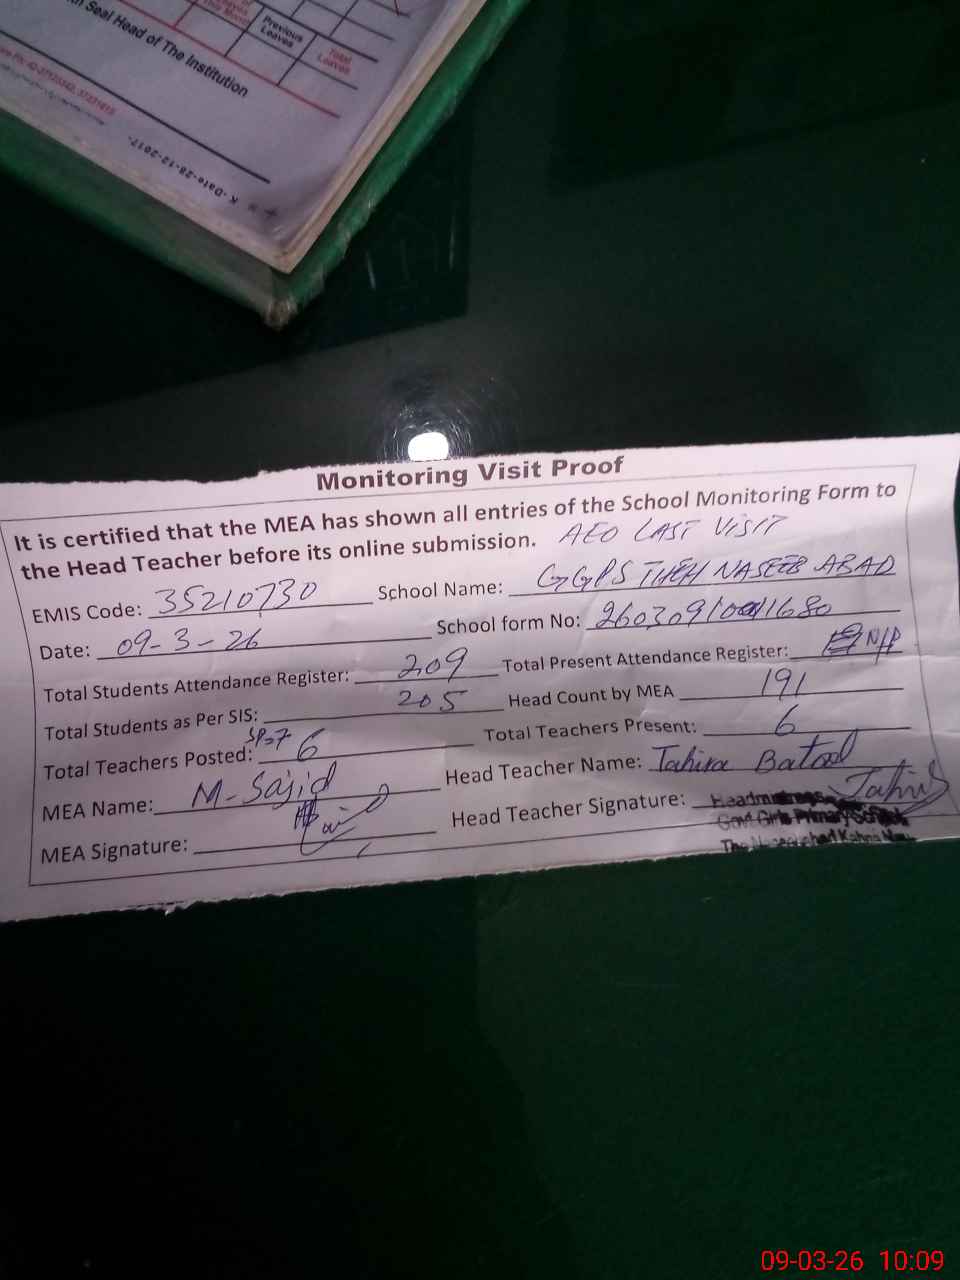 Seal Head of The Institution
This Month
Previous Leaves
Total Leaves
K - Date-28-12-2017-
Monitoring Visit Proof
It is certified that the MEA has shown all entries of the School Monitoring Form to
the Head Teacher before its online submission. AEO LAST VISIT
EMIS Code: 35210730 School Name: GGPS THEH NASEEB ABAD
Date: 09-3-26 School form No:
Total Students Attendance Register: 209 Total Present Attendance Register: N/P
Total Students as Per SIS: 205 Head Count by MEA 191
Total Teachers Posted: SP=7 6 Total Teachers Present: 6
MEA Name: M-Sajid Head Teacher Name: Tahira Batool
MEA Signature: Head Teacher Signature: Tahira
Headmistress
Govt Girls Primary School
09-03-26 10:09